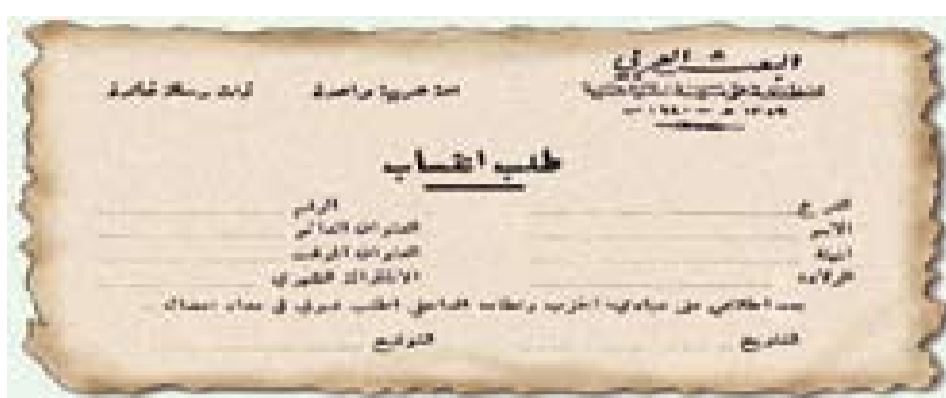 البعث العربي
أمة عربية واحدة ذات رسالة خالدة
طلب انتساب
الفرع الرقم
الاسم العنوان الدائم
المهنة العنوان المؤقت
الولادة الاشتراك الشهري
بعد اطلاعي على مبادئ الحزب ونظامه الداخلي اطلب قبولي في عداد اعضائه
التاريخ التوقيع